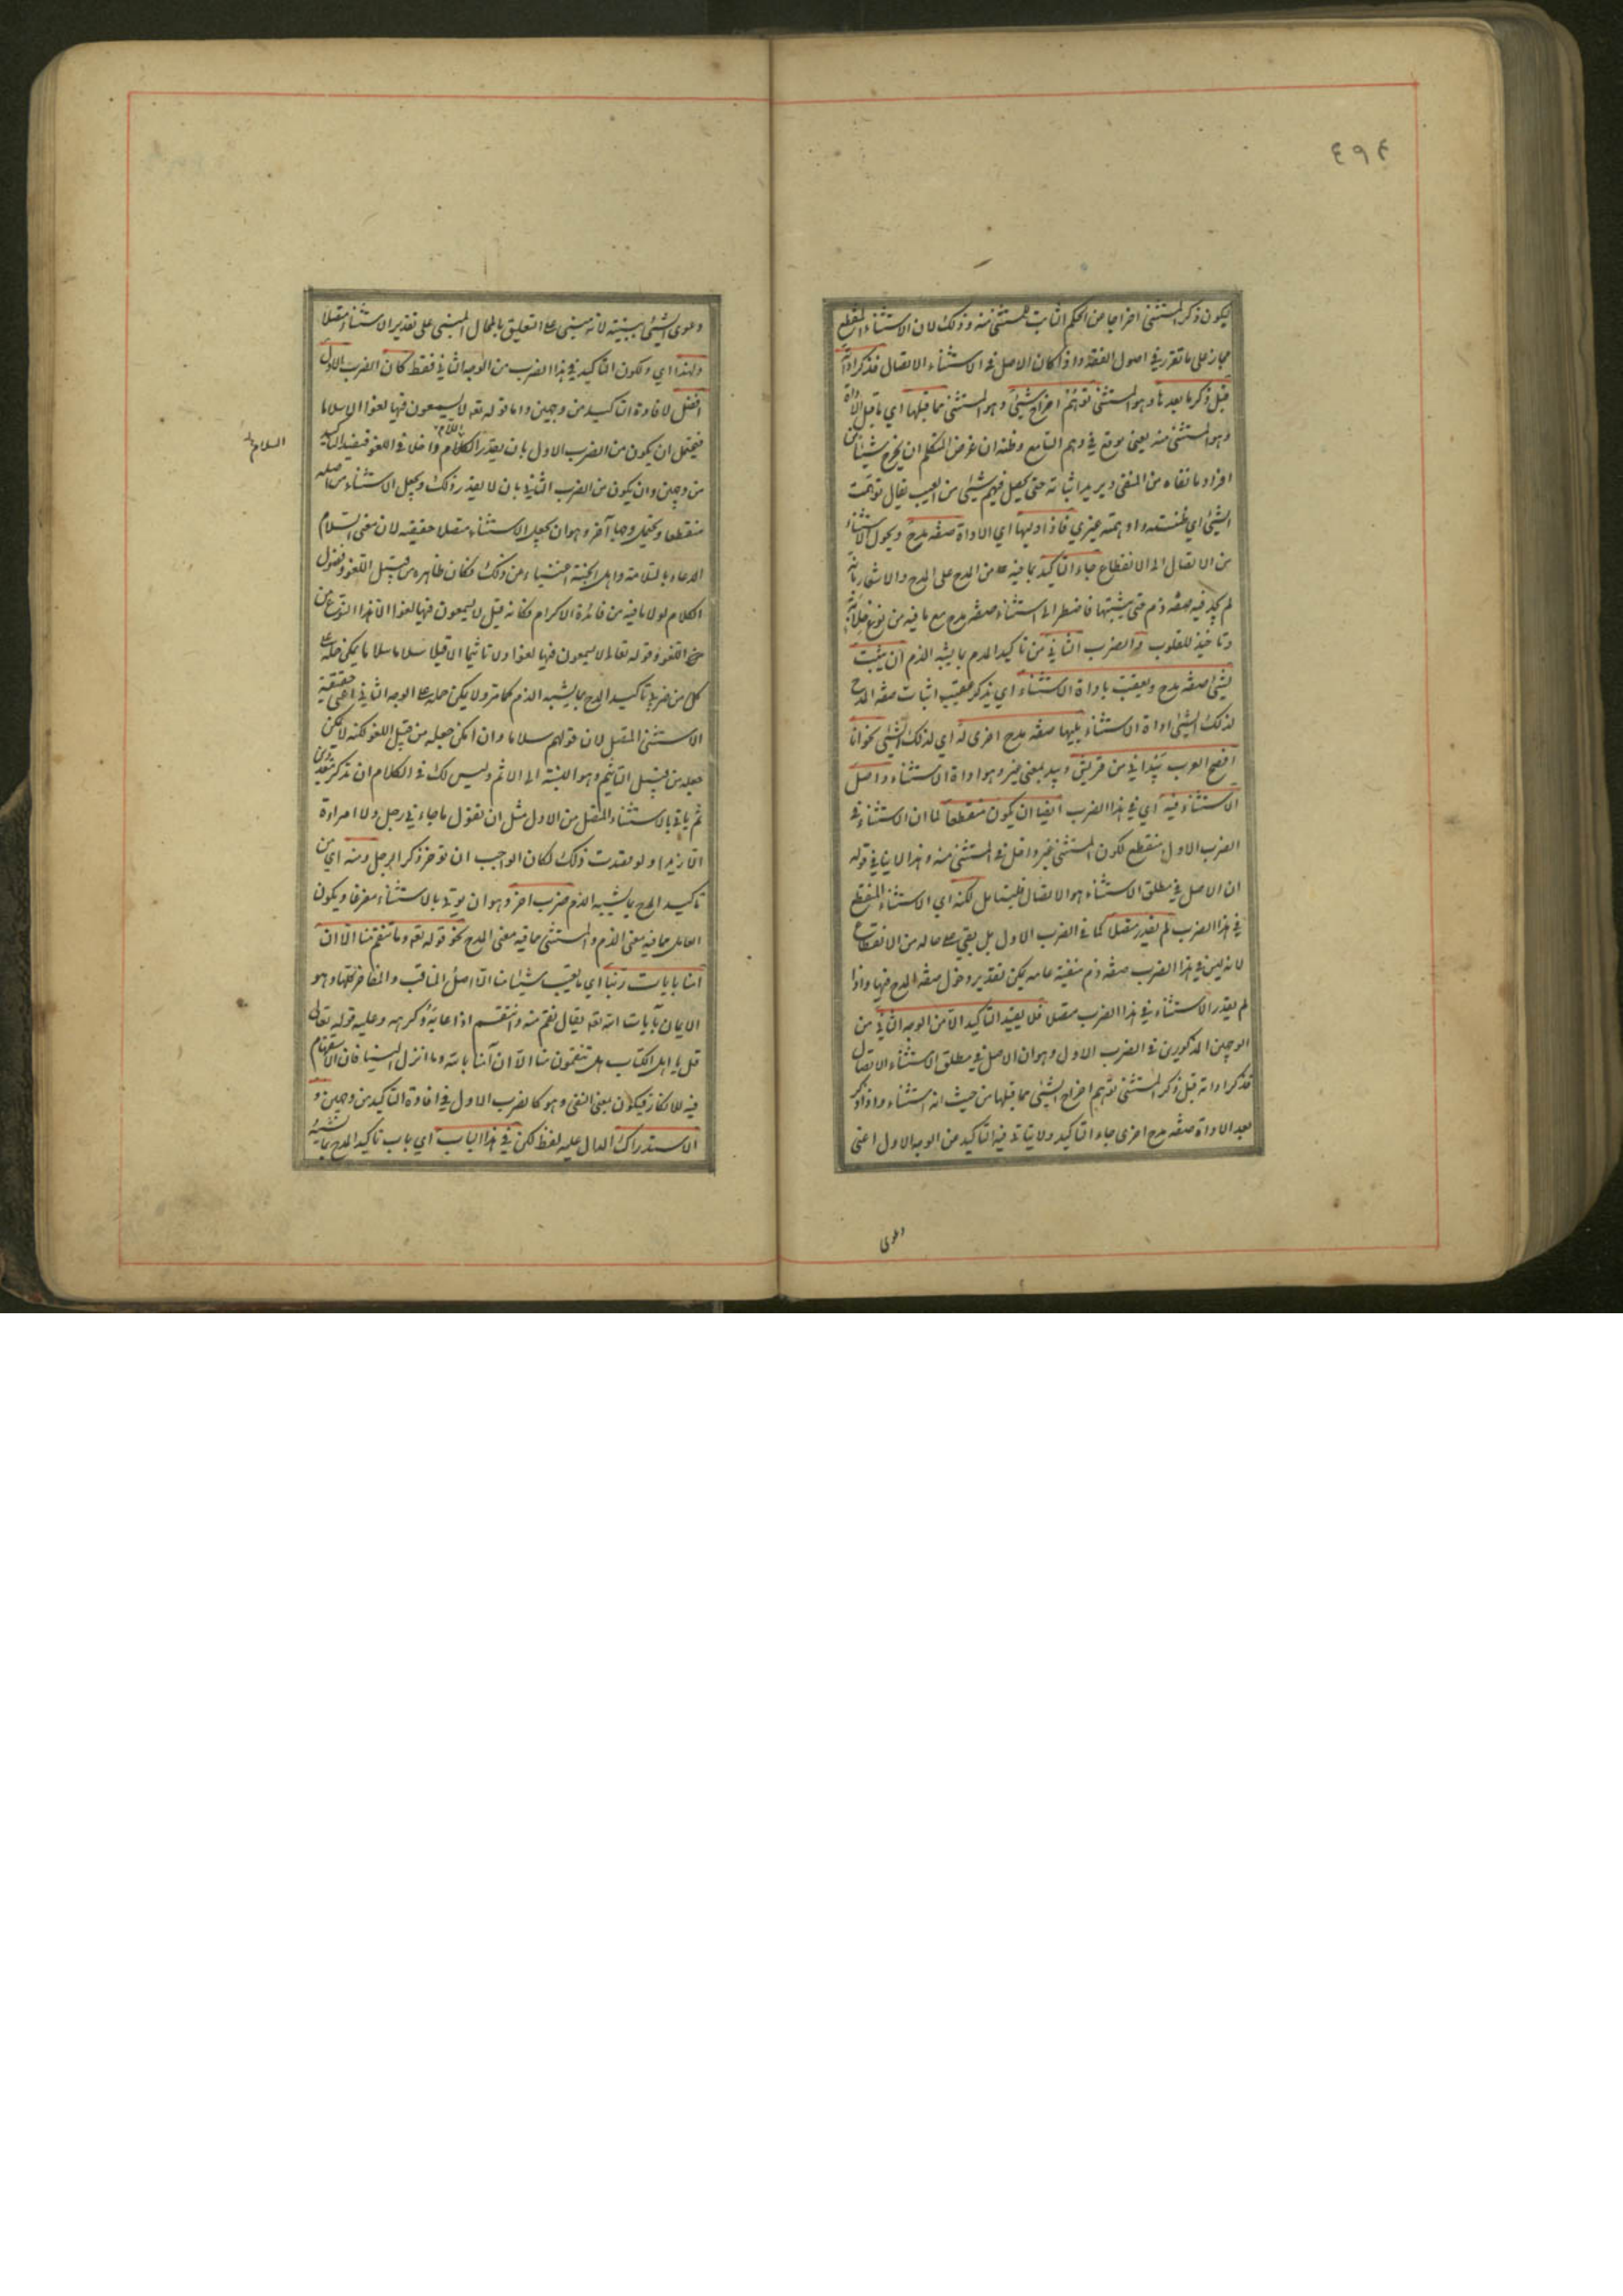 ٤٩٤
ليكون ذكر المستثنى اخراجا عن الحكم الثابت للمستثنى منه وذلك لان الاستثناء المنقطع
مجاز على ما تقرر في اصول الفقه واذا كان الاصل في الاستثناء الاتصال فذكر اداته
قبل ذكر ما بعدها وهو المستثنى توهم اخراج شيئ وهو المستثنى مما قبلها اي ما قبل الاداة
وهو المستثنى منه يعنى يوقع في وهم السامع وظنه ان غرض المتكلم ان يخرج شيئا من
افراد ما نفاه من المنفى ويريد اثباته حتى يحصل فيهم شيئ من العيب يقال توهمت
الشيئ اي ظننته واوهمته غيري فاذا وليها اي الاداة صفة مدح ويحول الاستثناء
من الاتصال الى الانقطاع جاء التاكيد لما فيه من المدح على المدح والاشعار بانه
لم يجد فيه صفة ذم حتى يثبتها فاضطر الى استثناء صفة مدح مع ما فيه من نوع خلابة
وتاخيذ للقلوب والضرب الثاني من تاكيد المدح بما يشبه الذم ان يثبت
لشيئ صفة مدح ويعقب باداة الاستثناء اي يذكر عقيب اثبات صفة المدح
لذلك الشيئ اداة الاستثناء يليها صفة مدح اخرى له اي لذلك الشيئ نحو انا
افصح العرب بيد اني من قريش وبيد بمعنى غير وهو اداة الاستثناء واصل
الاستثناء فيه اي في هذا الضرب ايضا ان يكون منقطعا كما ان الاستثناء في
الضرب الاول منقطع لكون المستثنى غير داخل في المستثنى منه وهذا لا ينافي قوله
ان الاصل في مطلق الاستثناء هو الاتصال فليتامل لكنه اي الاستثناء المنقطع
في هذا الضرب لم يقدر متصلا كما في الضرب الاول بل بقي على حاله من الانقطاع
لانه ليس في هذا الضرب صفة ذم منفية عامه يمكن تقدير دخول صفة المدح فيها واذا
لم يقدر الاستثناء في هذا الضرب متصلا فلا يفيد التاكيد الا من الوجه الثاني من
الوجهين المذكورين في الضرب الاول وهو ان الاصل في مطلق الاستثناء الاتصال
فذكر اداته قبل ذكر المستثنى توهم اخراج الشيئ مما قبلها من حيث انه استثناء واذا ذكر
بعد الاداة صفة مدح اخرى جاء التاكيد ولا يتاتى فيه التاكيد من الوجه الاول اعنى
دعوى
دعوى الشيئ ببينة لانه مبنى على التعليق بالمحال المبنى على تقدير الاستثناء متصلا
ولهذا اي ولكون التاكيد في هذا الضرب من الوجه الثاني فقط كان الضرب الاول
افضل لافادة التاكيد من وجهين واما قوله تعه لا يسمعون فيها لغوا الا سلاما
فيحتمل ان يكون من الضرب الاول بان يقدر الكلام داخلا في اللغو فيفيد التاكيد
السلام
السلام
من وجهين وان يكون من الضرب الثاني بان لا يقدر ذلك ويجعل الاستثناء من اصله
منقطعا ويحتمل وجها آخر وهو ان يجعل الاستثناء متصلا حقيقة لان معنى السلام
الدعاء بالسلامة واهل الجنة اغنياء عن ذلك فكان ظاهره من قبيل اللغو وفضول
الكلام لولا ما فيه من فائدة الاكرام فكانه قيل لا يسمعون فيها لغوا الا هذا النوع من
اللغو وقوله تعالى لا يسمعون فيها لغوا ولا تاثيما الا قيلا سلاما سلاما يمكن حمله على
كل من ضربي تاكيد المدح بما يشبه الذم كما مر ولا يمكن حمله على الوجه الثالث اعنى حقيقة
الاستثناء المتصل لان قولهم سلاما وان امكن جعله من قبيل اللغو لكنه لا يمكن
جعله من قبيل التاثيم وهو النسبة الى الاثم وليس لك في الكلام ان تذكر متعددين
ثم ياتي بالاستثناء المتصل من الاول مثل ان تقول ما جاءني رجل ولا امراءة
الا زيدا ولو قصدت ذلك لكان الواجب ان تؤخر ذكر الرجل ومنه اي من
تاكيد المدح بما يشبه الذم ضرب اخر وهو ان يؤتى بالاستثناء مفرغا ويكون
العامل مما فيه معنى الذم والمستثنى مما فيه معنى المدح نحو قوله تعه وما تنقم منا الا ان
آمنا بايات ربنا اي ما يعيب شيئا منا الا اصل المناقب والمفاخر كلها وهو
الايمان بآيات الله تعه يقال نقم منه وانتقم اذا عابه وكرهه وعليه قوله تعالى
قل يا اهل الكتاب هل تنقمون منا الا ان آمنا بالله وما انزل الينا فان الاستفهام
فيه للانكار فيكون بمعنى النفى وهو كالضرب الاول في افادة التاكيد من وجهين و
الاستدراك الدال عليه لفظ لكن في هذا الباب اي باب تاكيد المدح بما يشبه